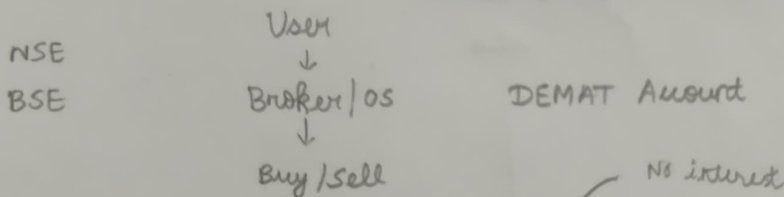 User
NSE
↓
BSE Broker/OS DEMAT Account
↓
Buy/Sell No interest